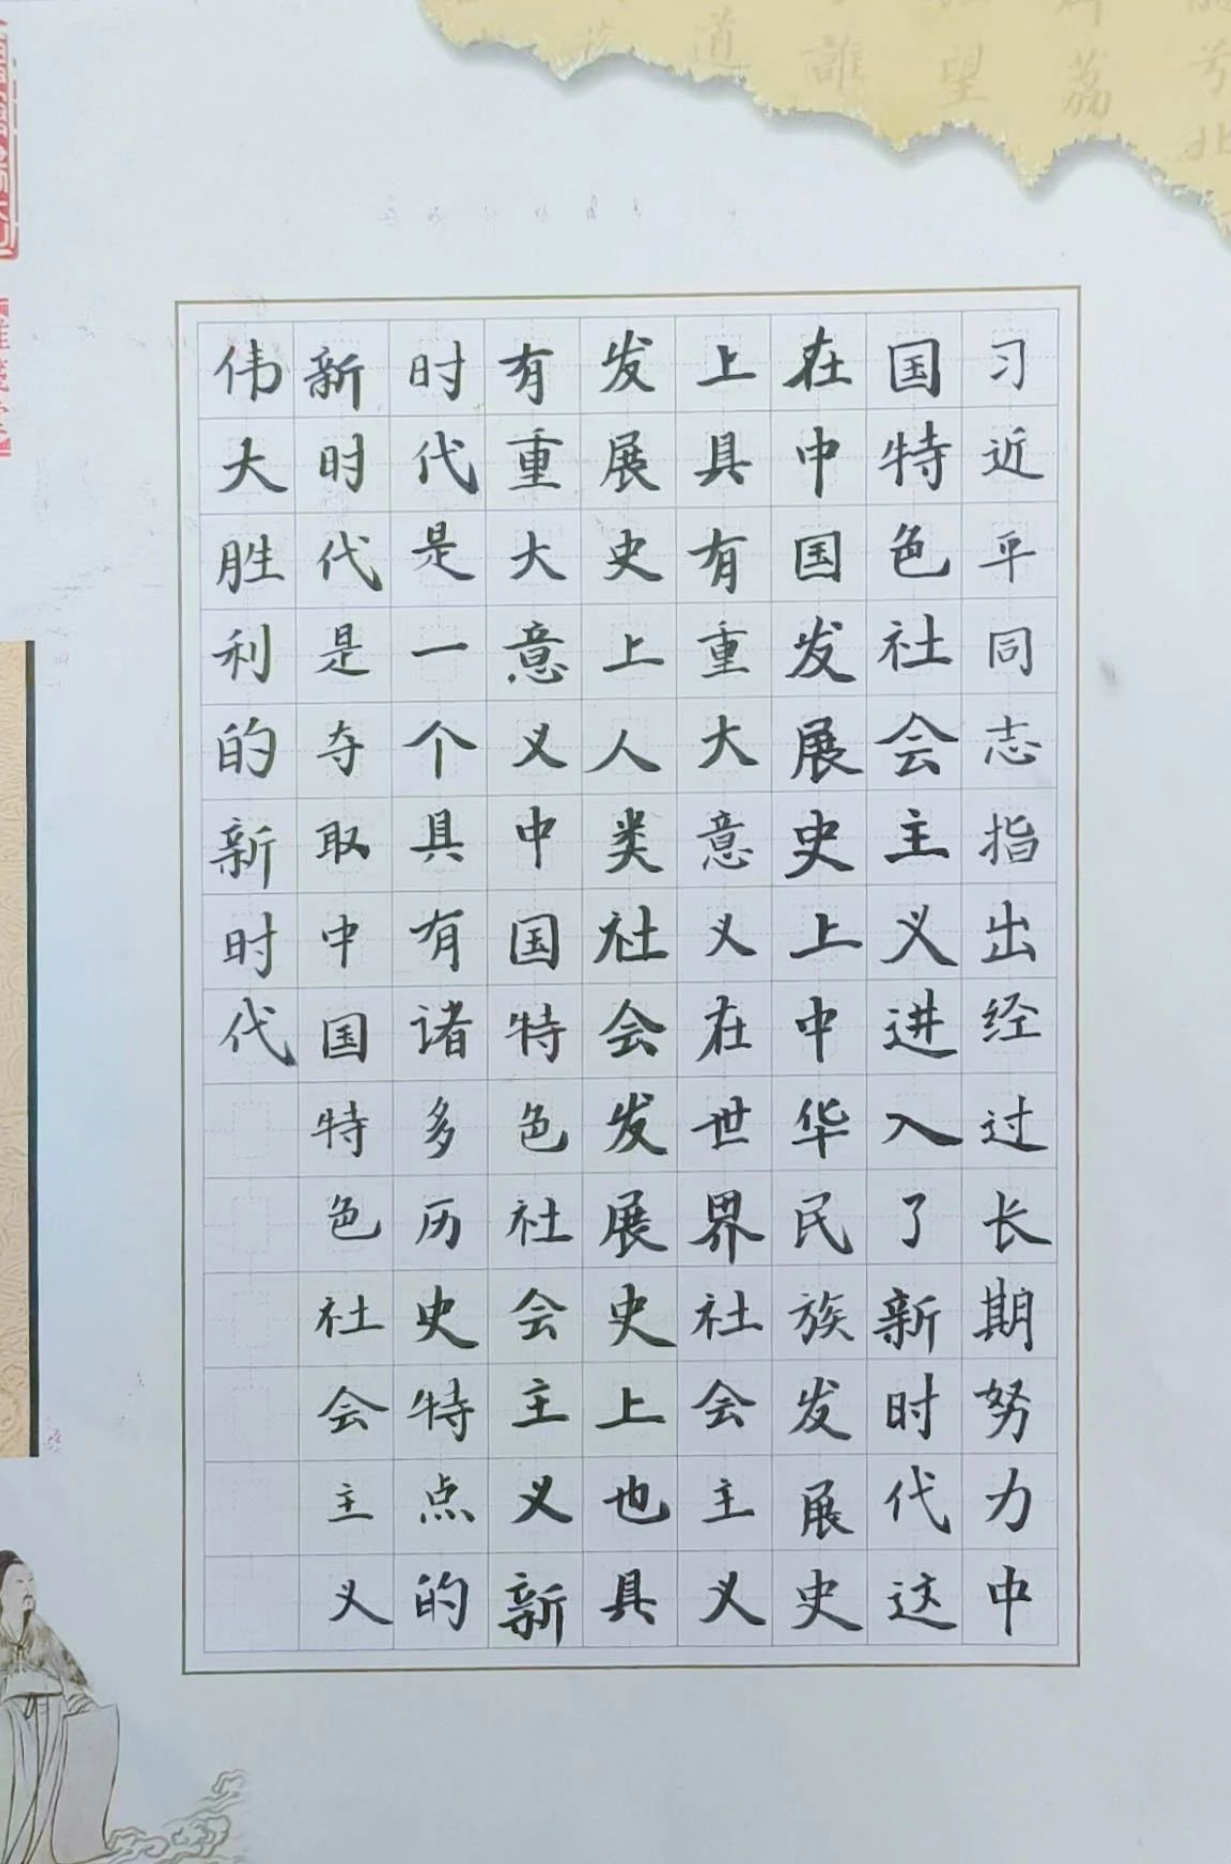 习近平同志指出经过长期努力中
国特色社会主义进入了新时代这
在中国发展史上中华民族发展史
上具有重大意义在世界社会主义
发展史上人类社会发展史上也具
有重大意义中国特色社会主义新
时代是一个具有诸多历史特点的
新时代是夺取中国特色社会主义
伟大胜利的新时代
道
誰
望
荔